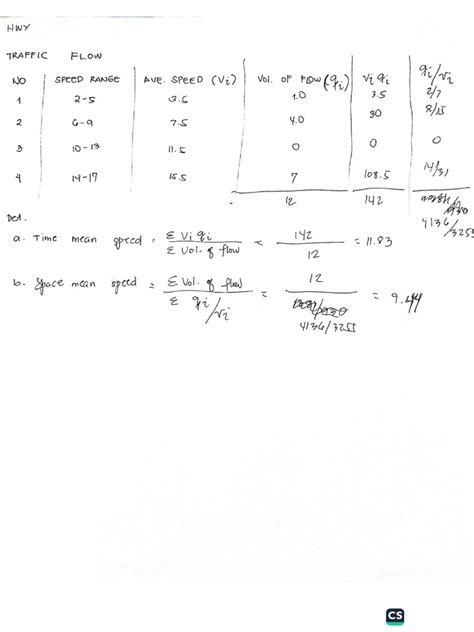 HWY
TRAFFIC FLOW
NO SPEED RANGE AVE. SPEED (Vi) Vol. OF FLOW (qi) Vi qi qi/vi
1 2-5 3.5 1.0 3.5 2/7
2 6-9 7.5 4.0 30 8/15
3 10-13 11.5 0 0 0
4 14-17 15.5 7 108.5 14/31
12 142
4136/3255
Det.
a. Time mean speed = Σ Vi qi / Σ Vol. of flow = 142 / 12 = 11.83
b. Space mean speed = Σ Vol. of flow / Σ qi/vi = 12 / 4136/3255 = 9.44
CS